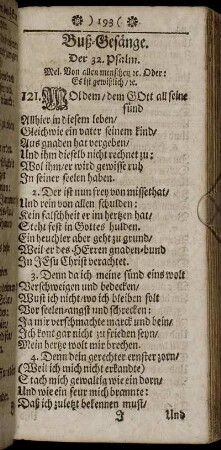 ) 193 (
Buß-Gesänge.
Der 32. Psalm.
Mel. Von allen menschen ꝛc. Oder:
Es ist gewißlich / ꝛc.
121. Woldem / dem GOtt all seine
sünd
Allhier in diesem leben /
Gleichwie ein vater seinem kind /
Aus gnaden hat vergeben /
Und ihm dieselb nicht rechnet zu:
Wol ihm / er wird gewisse ruh
In seiner seelen haben.
2. Der ist nun frey von missethat /
Und rein von allen schulden :
Kein falschheit er im hertzen hat /
Steht fest in Gottes hulden.
Ein heuchler aber geht zu grund /
Weil er des HErren gnaden-bund
In JEsu Christ verachtet.
3. Denn da ich meine sünd eins wolt
Verschweigen und bedecken /
Wust ich nicht / wo ich bleiben solt
Vor seelen-angst und schrecken :
Ja mir verschmachte marck und bein /
Ich kont gar nicht zu frieden seyn /
Mein hertze wolt mir brechen.
4. Denn dein gerechter ernster zorn /
(Weil ich mich nicht erkandte)
Stach mich gewaltig wie ein dorn /
Und wie ein feur mich brannte :
Daß ich zuletzt bekennen must /
J Und